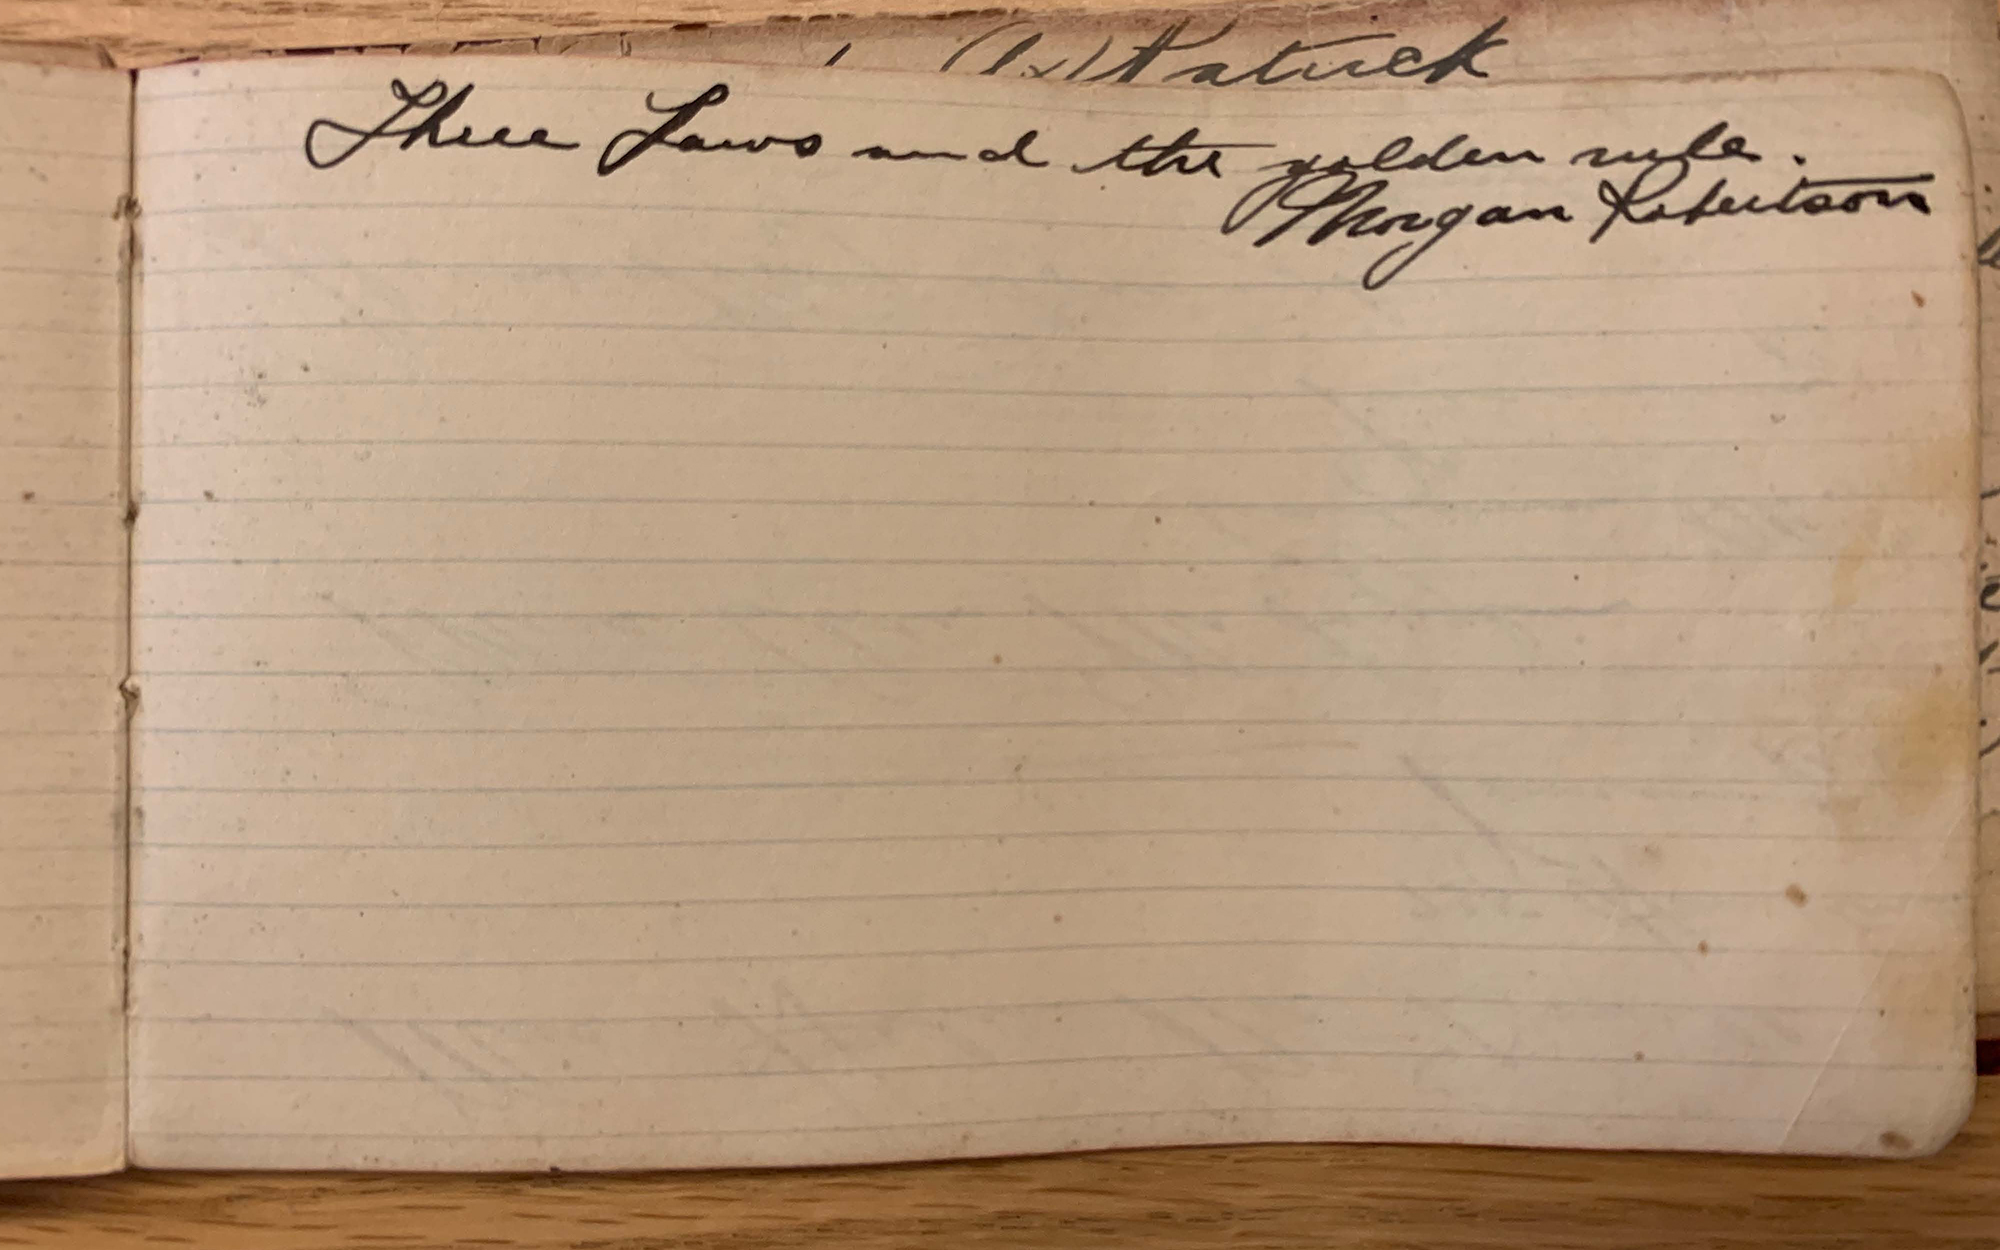 Patrick
Three Laws and the golden rule.
Morgan Robertson